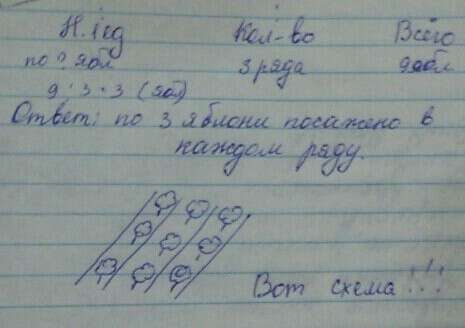 Н. 1ед Кол-во Всего
по ? ябл 3 ряда 9ябл
9 : 3 = 3 (ябл)
Ответ: по 3 яблони посажено в
каждом ряду.
Вот схема!!!